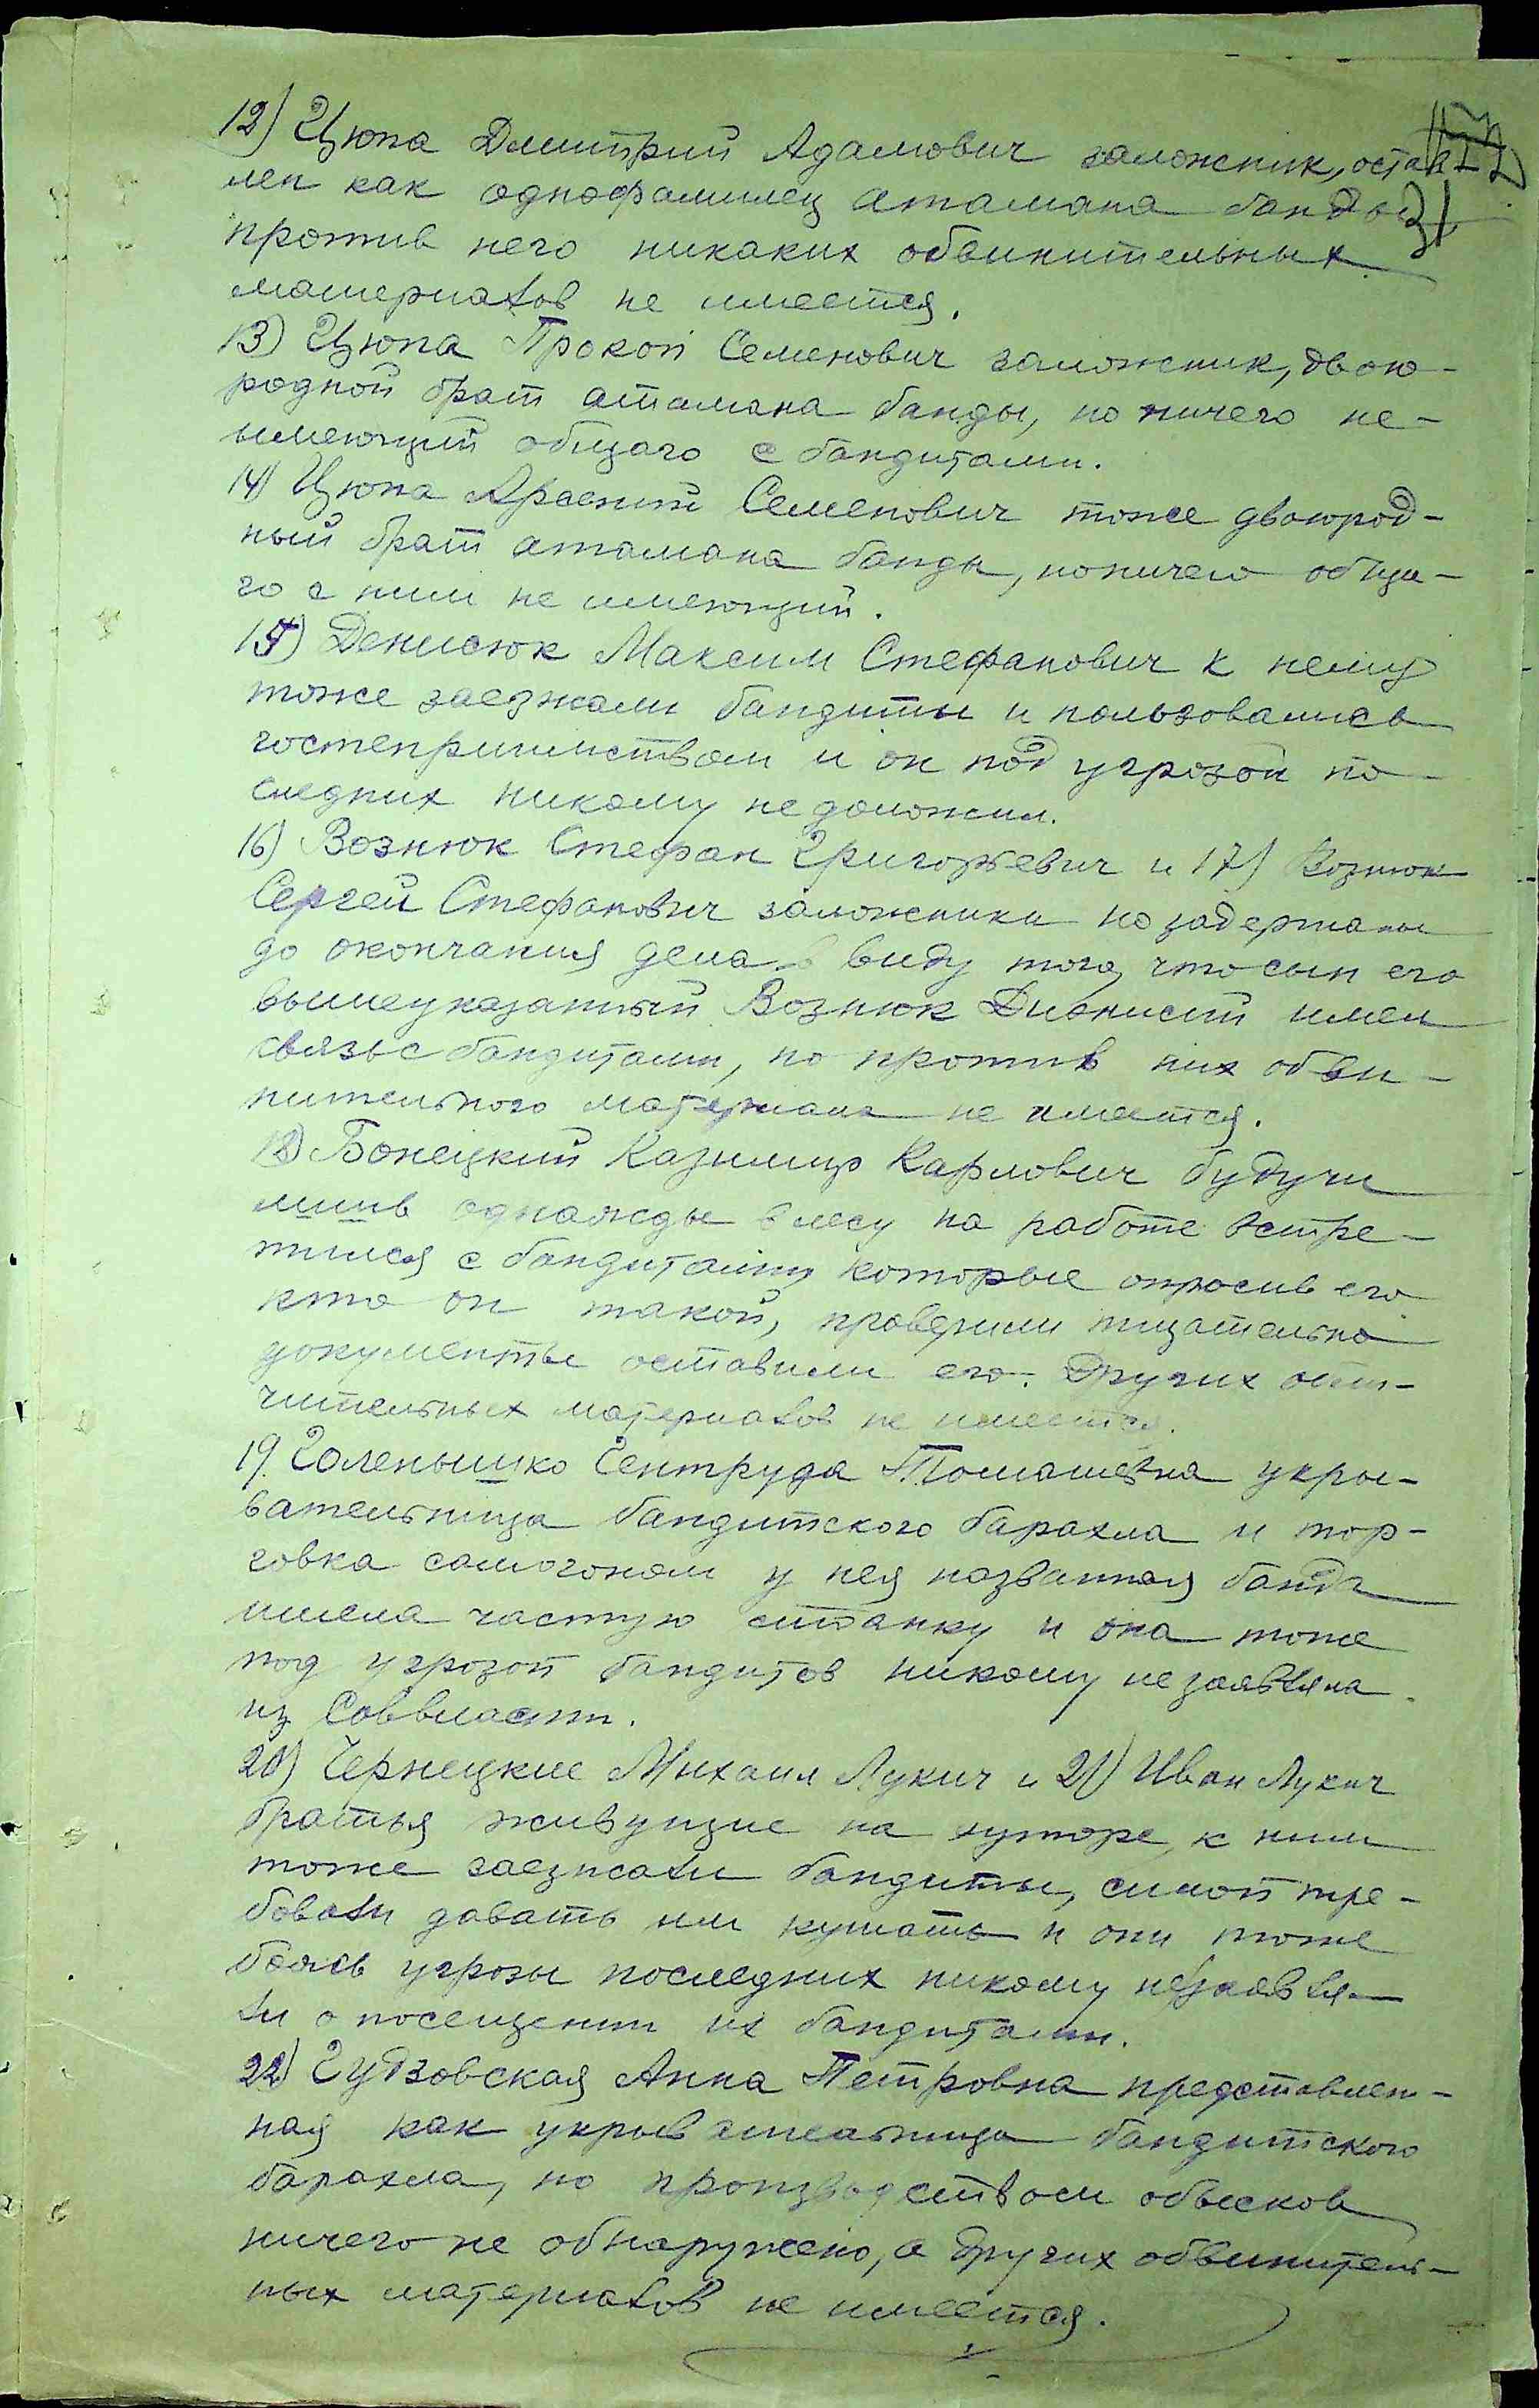 12) Цюпа Дмитрий Адамович заложник, остав
лен как однофамилец атамана банды
31
против него никаких обвинительных
материалов не имеется.
13) Цюпа Прокоп Семенович заложник, двою-
родной брат атамана банды, но ничего не-
имеющий общаго с бандитами.
14) Цюпа Арсений Семенович тоже двоюрод-
ный брат атамана банды, но ничего обща-
го с ним не имеющий.
15) Денисюк Максим Стефанович к нему
тоже заезжали бандиты и пользовались
гостеприимством и он под угрозой по-
следних никому не доложил.
16) Вознюк Стефан Григорьевич и 17) Вознюк
Сергей Стефанович заложники но задержаны
до окончания дела в виду того, что сын его
вышеуказанный Вознюк Дионисий имел
связь с бандитами, но против них обви-
нительного материала не имеется.
18) Бонецкий Казимир Карлович будучи
лишь однажды в лесу на работе встре-
тился с бандитами которые опросив его
кто он такой, проверили тщательно
документы оставили его. Других обли-
чительных материалов не имеется.
19. Голенышко Гентруда Томашевна укры-
вательница бандитского барахла и тор-
говка самогоном у нея названная банда
имела частую стоянку и она тоже
под угрозой бандитов никому не заявляла
из Соввласти.
20) Чернецкие Михаил Лукич и 21) Иван Лукич
братья живущие на хуторе, к ним
тоже заезжали бандиты, силой тре-
бовали давать им кушать и они тоже
боясь угрозы последних никому не заявля-
ли о посещении их бандитами.
22) Гудзовская Анна Петровна представлен-
ная как укрывательница бандитского
барахла, но производством обысков
ничего не обнаружено, а других обвинитель-
ных материалов не имеется.